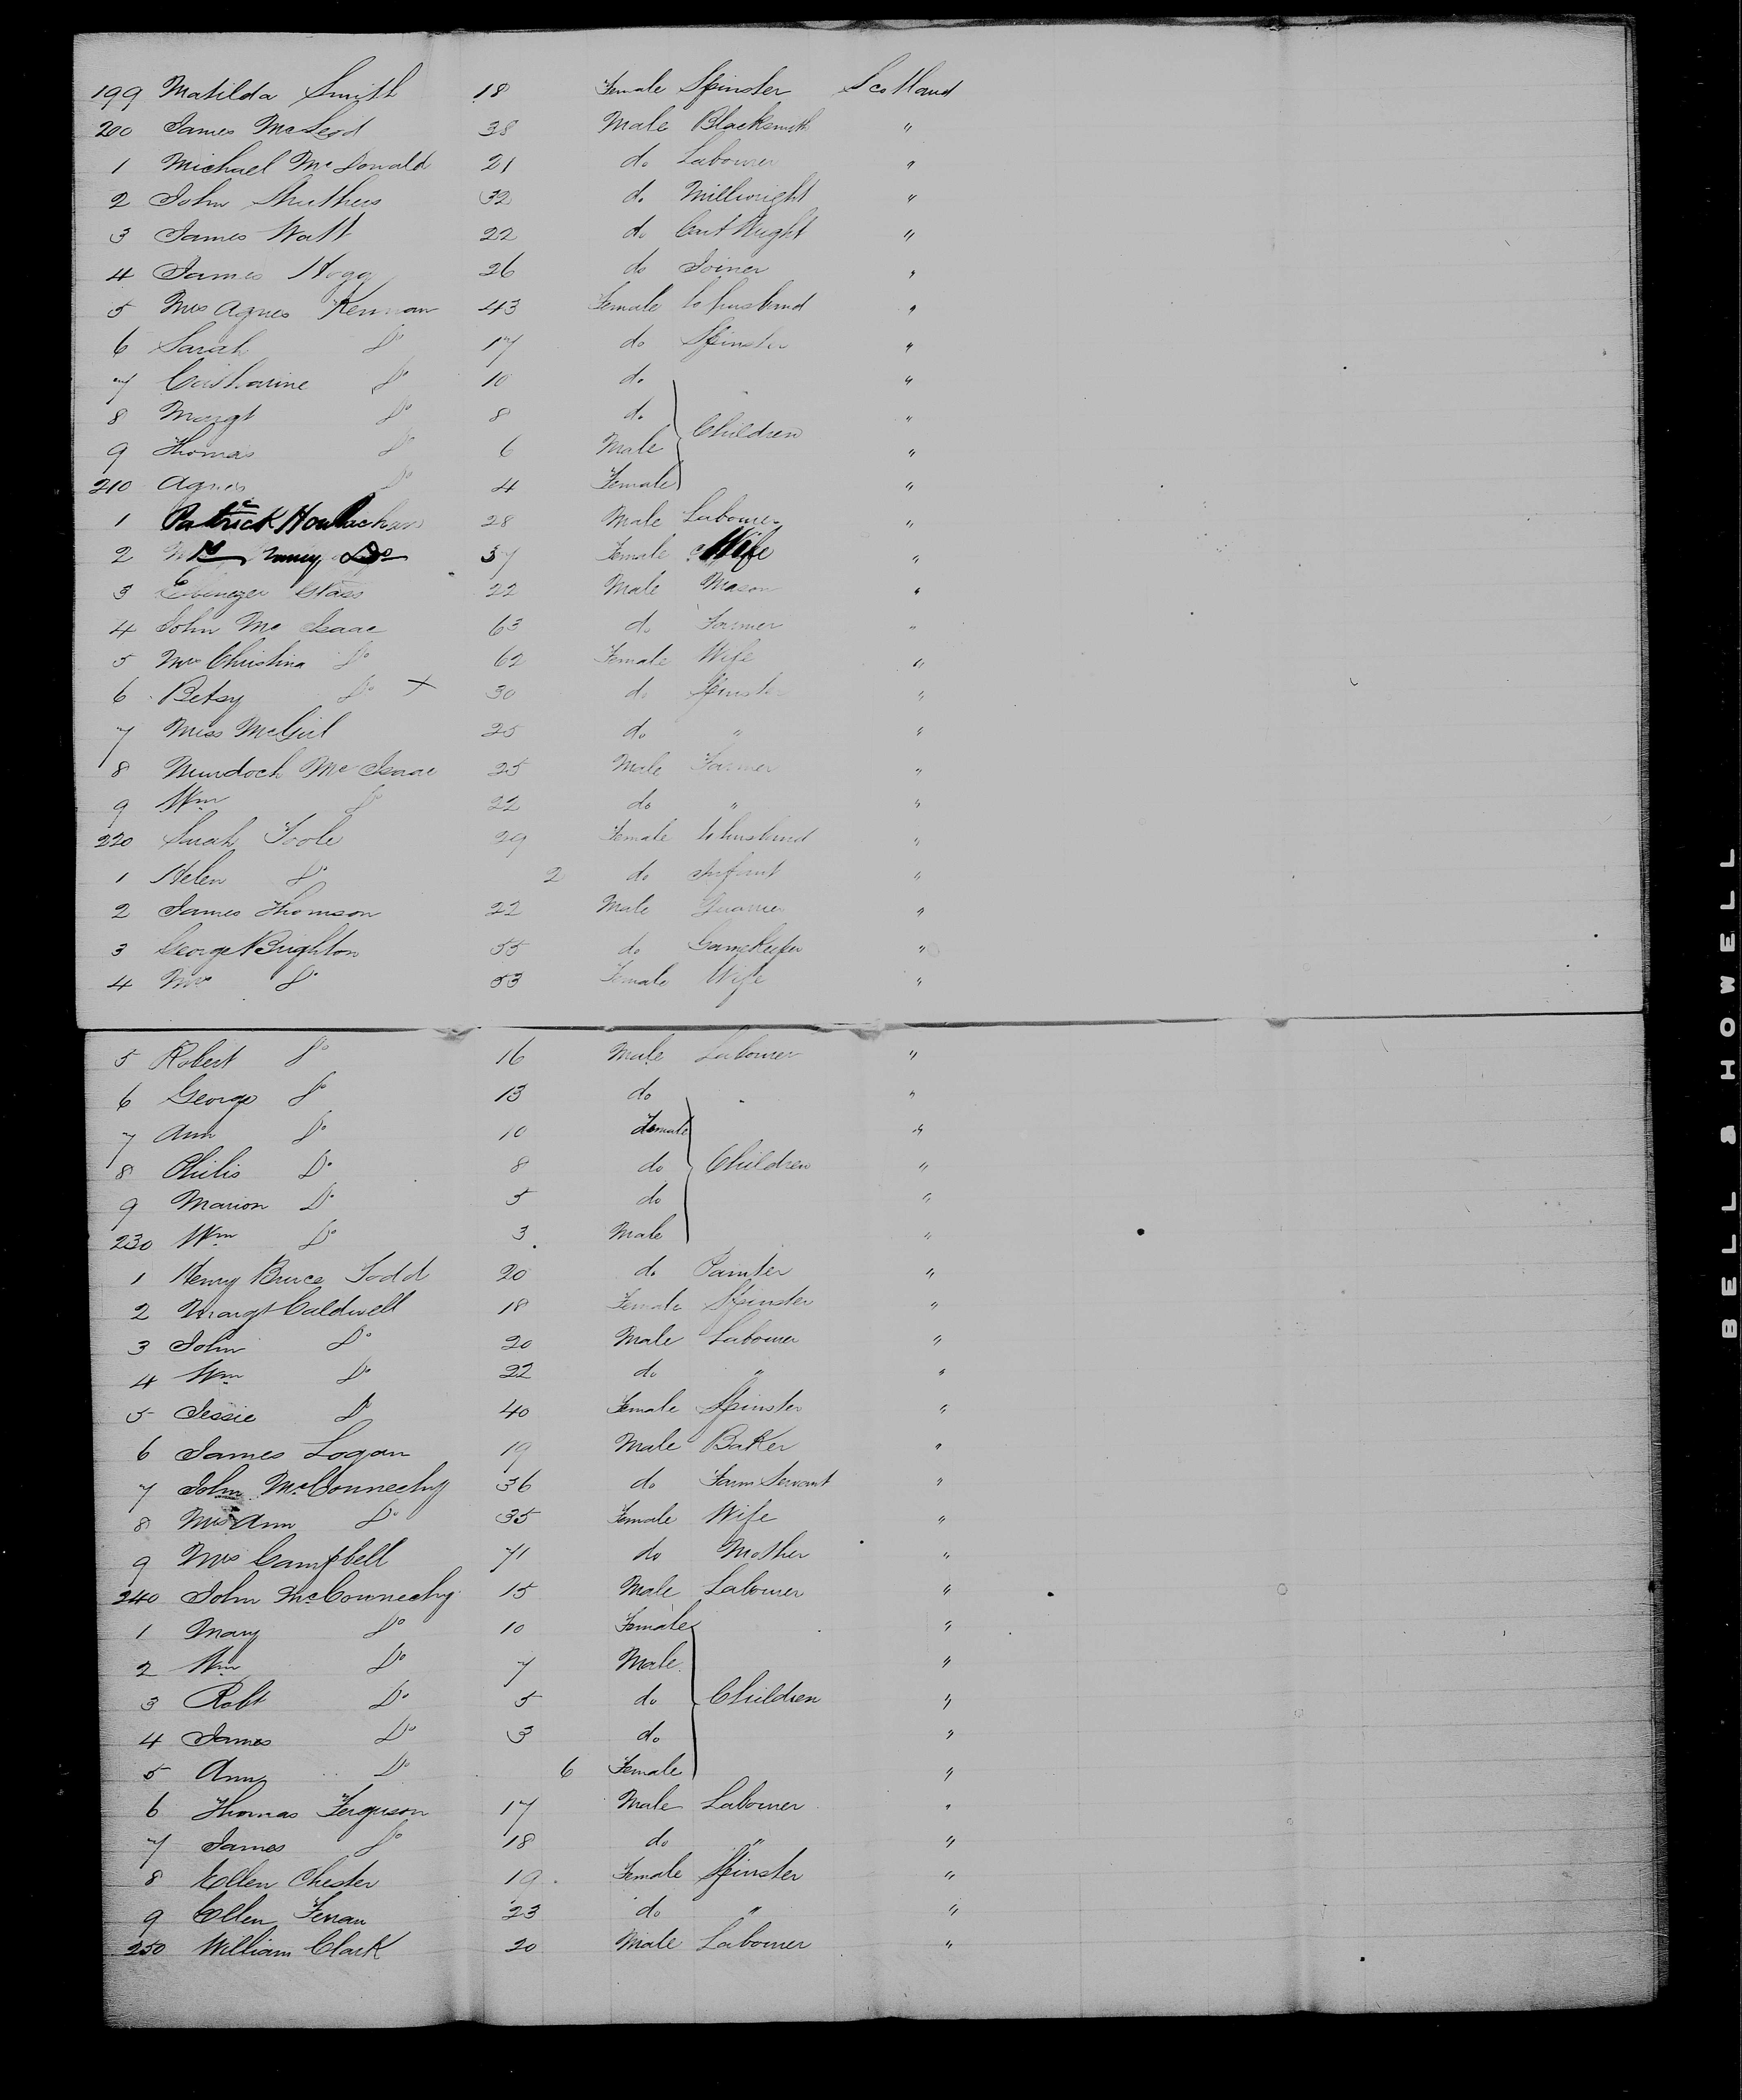 199 Matilda Smith 18 Female Spinster Scotland
200 James McLeod 38 Male Blacksmith "
1 Michael McDonald 21 do Labourer "
2 John Struthers 32 do Millwright "
3 James Watt 22 do Cart Wright "
4 James Hogg 26 do Joiner "
5 Mrs Agnes Kennan 43 Female to husband "
6 Sarah Do 17 do Spinster "
7 Catharine Do 10 do "
8 Margt Do 8 do "
Children
9 Thomas Do 6 Male "
210 Agnes Do 4 Female "
1 Patrick Houlachan 28 Male Labourer "
2 Mrs Nancy Do 37 Female Wife "
3 Ebenezer 22 Male Mason "
4 John McIsaac 63 do Farmer "
5 Mrs Christina Do 62 Female Wife "
6 Betsy Do + 30 do Spinster "
7 Miss McGirl 25 do " "
8 Murdoch McIsaac 25 Male Farmer "
9 Wm Do 22 do " "
220 Sarah Toole 29 Female to husband "
1 Helen Do 2 do Infant "
2 James Thomson 22 Male "
3 George Brighton 55 do Gamekeeper "
4 Mrs Do 53 Female Wife "
5 Robert Do 16 Male Labourer "
6 George Do 13 do "
7 Ann Do 10 Female "
8 Philis Do 8 do Children "
9 Marion Do 5 do "
230 Wm Do 3 Male "
1 Henry Bruce Todd 20 do Painter "
2 Margt Caldwell 18 Female Spinster "
3 John Do 20 Male Labourer "
4 Wm Do 22 do " "
5 Jessie Do 40 Female Spinster "
6 James Logan 19 Male Baker "
7 John McConnechy 36 do Farm Servant "
8 Mrs Ann Do 35 Female Wife "
9 Mrs Campbell 71 do Mother "
240 John McConnechy 15 Male Labourer "
1 Mary Do 10 Female "
2 Wm Do 7 Male "
3 Robt Do 5 do Children "
4 James Do 3 do "
5 Ann Do 6 Female "
6 Thomas Ferguson 17 Male Labourer "
7 James Do 18 do " "
8 Ellen Chester 19 Female Spinster "
9 Ellen Ferran 23 do " "
250 William Clark 20 Male Labourer "
BELL & HOWELL